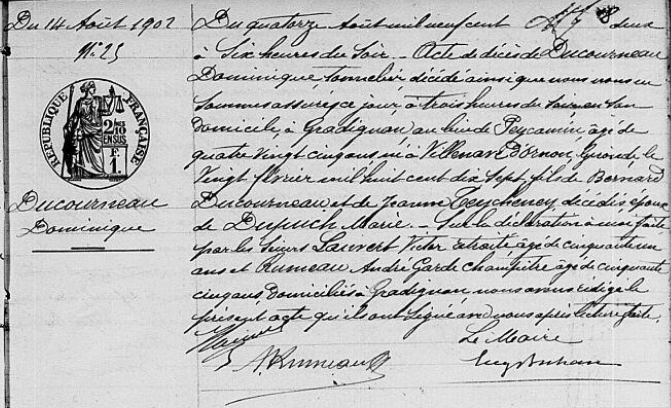 Du 14 Août 1902
N° 25
RÉPUBLIQUE FRANÇAISE
2/10
EN SUS
F.
1.
Ducourneau
Dominique
Du quatorze Août mil neuf cent deux
à Six heures du Soir. _ Acte de décès de Ducourneau
Dominique, tonnelier décédé ainsi que nous nous en
sommes assuré ce jour à trois heures du soir en son
Domicile, à Gradignan au lieu de Peycamin, âgé de
quatre vingt cinq ans, né à Villenave D'ornon, Gironde le
Vingt février mil huit cent dix sept, fils de Bernard
Ducourneau et de Jeanne décédés, époux
de Dupuch Marie. _ Sur la déclaration à nous faite
par les Sieurs Lauvert Victor retraité âgé de cinquante un
ans et Rumeau André Garde champêtre âgé de cinquante
cinq ans, Domiciliés à Gradignan, nous avons rédigé le
présent acte qu'ils ont signé avec nous après lecture faite.
A. Rumeau
Le Maire